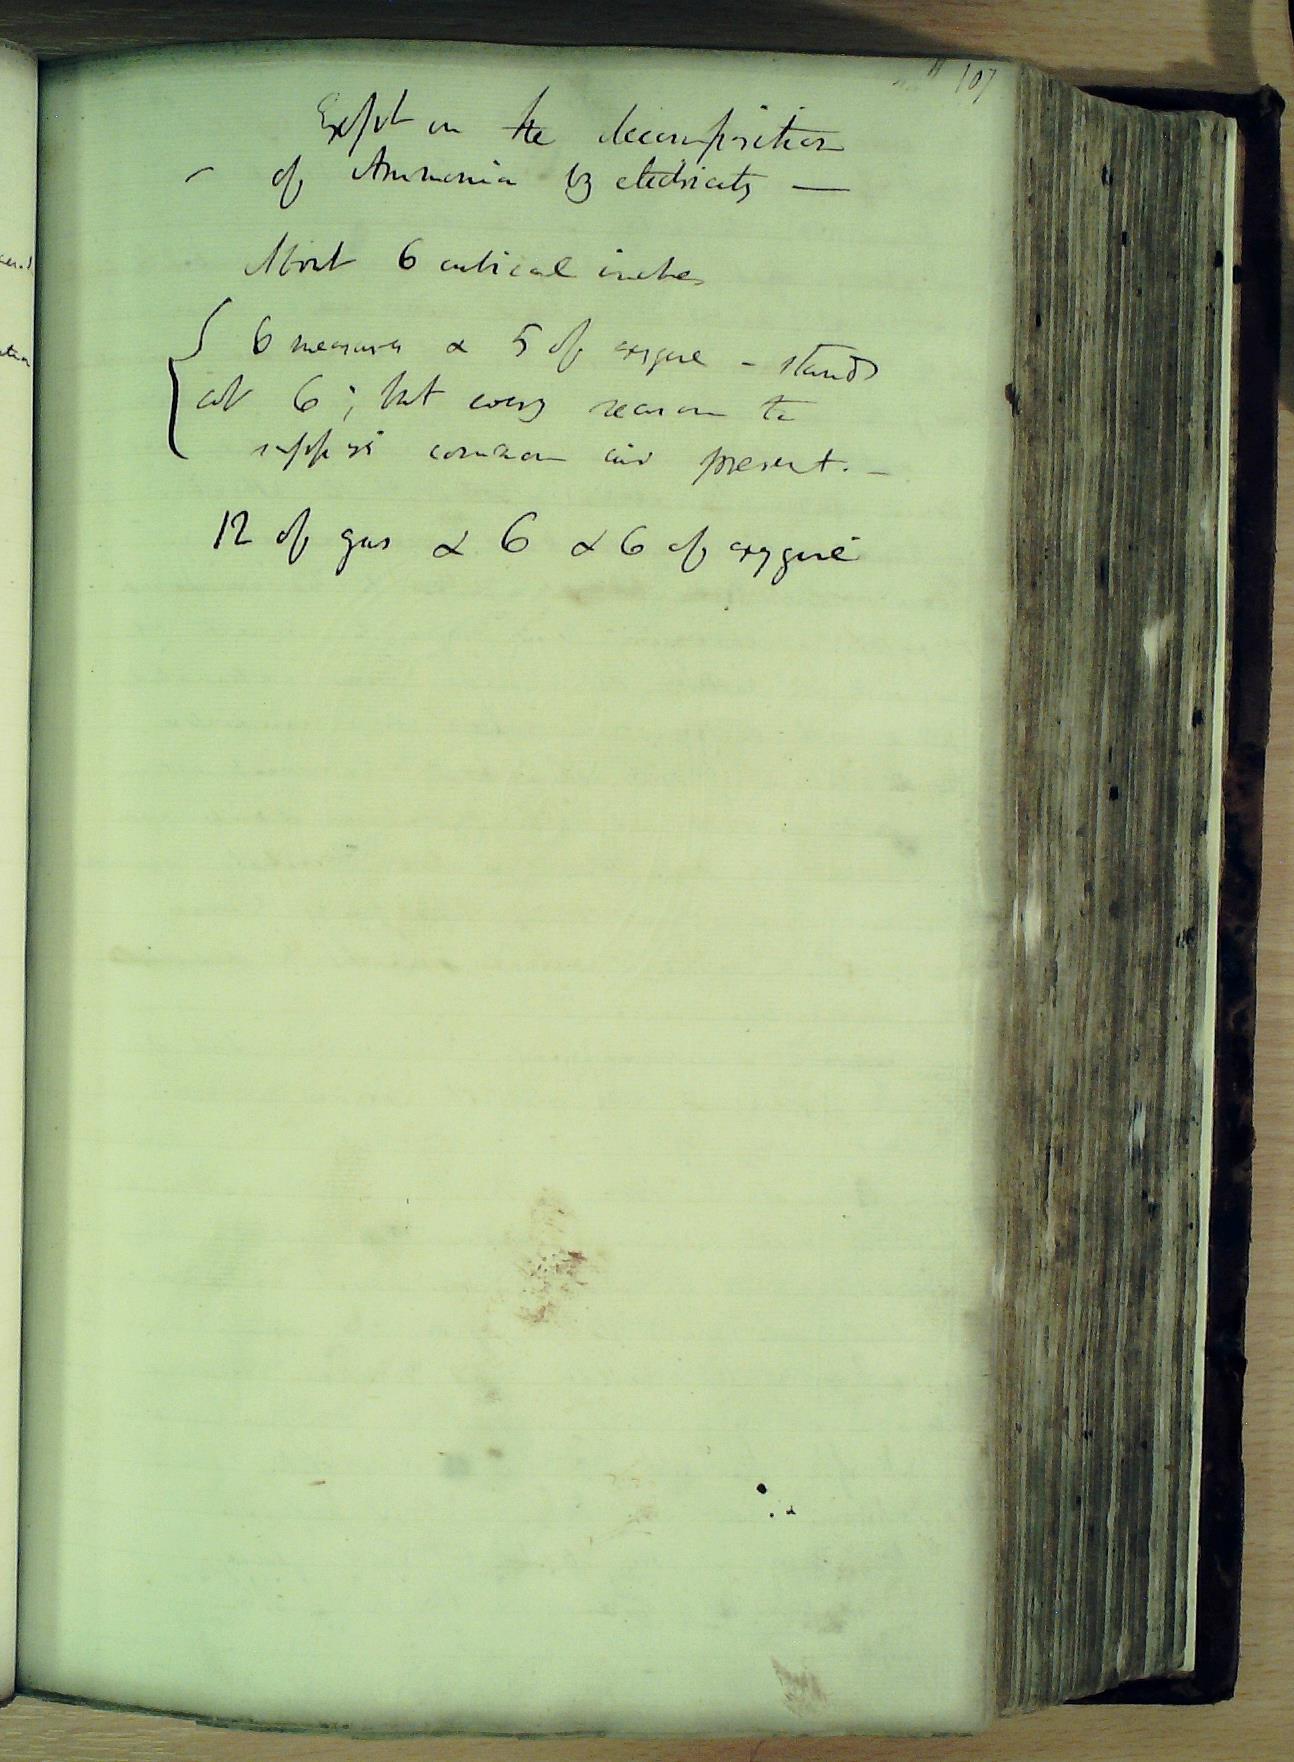 107
Expt on the decomposition
of Ammonia by electricity —
About 6 cubical inches
6 measures & 5 of oxygene - stands
at 6; but every reason to
suppose common air present. -
12 of gas & 6 & 6 of oxygene